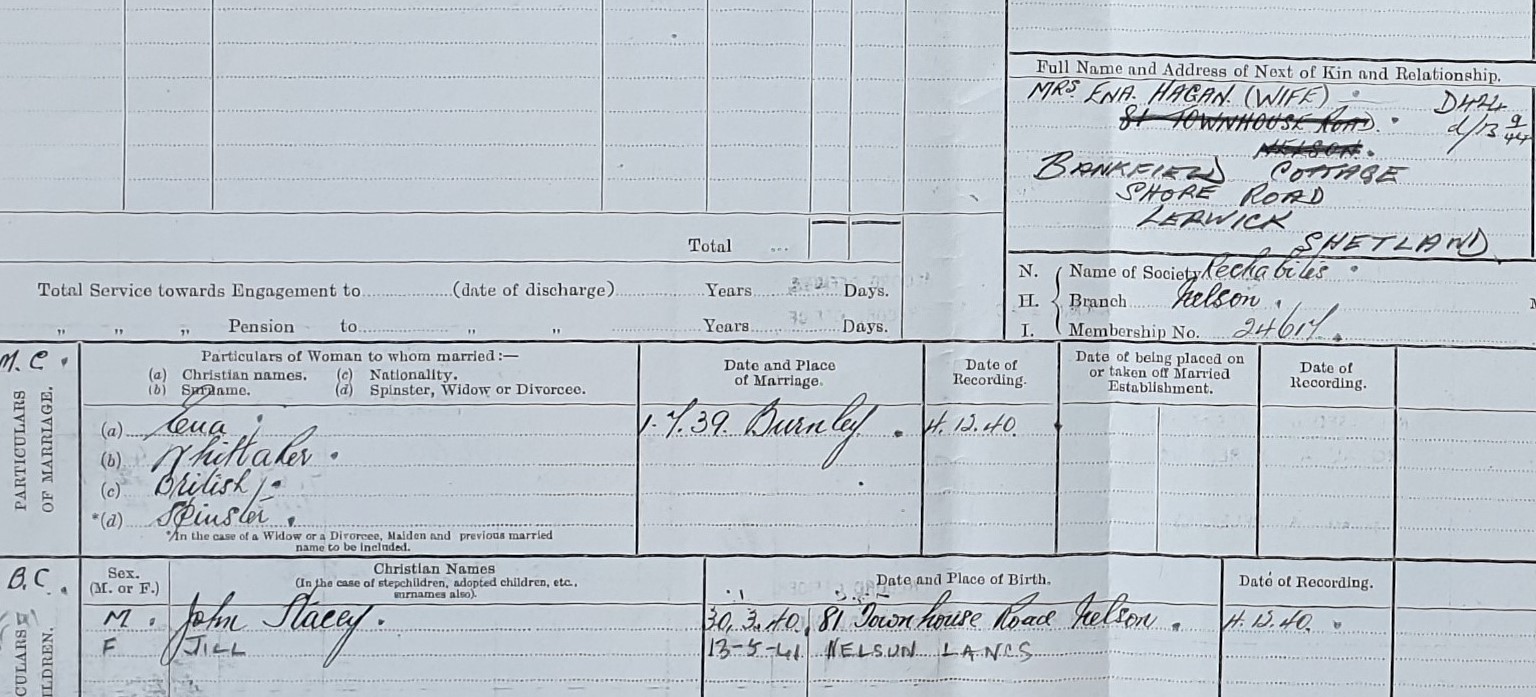 Full Name and Address of Next of Kin and Relationship.
MRS. ENA. HAGAN. (WIFE)
D424
81 TOWNHOUSE ROAD.
d/13 9/44
NELSON.
BANKFIELD COTTAGE
SHORE ROAD
LERWICK
SHETLAND
Total ...
Total Service towards Engagement to (date of discharge) Years Days.
„ „ „ Pension to „ „ Years Days.
N. H. I.
Name of Society Rechabites.
Branch Nelson.
Membership No. 24617.
M.C.
PARTICULARS OF MARRIAGE.
Particulars of Woman to whom married:—
(a) Christian names. (c) Nationality.
(b) Surname. (d) Spinster, Widow or Divorcee.
Date and Place of Marriage.
Date of Recording.
Date of being placed on or taken off Married Establishment.
Date of Recording.
(a) Ena 1.7.39. Burnley. 4.12.40.
(b) Whittaker.
(c) British.
*(d) Spinster.
*In the case of a Widow or a Divorcee, Maiden and previous married
name to be included.
B.C.
CULARS
ILDREN.
Sex. (M. or F.)
Christian Names
(In the case of stepchildren, adopted children, etc., surnames also).
Date and Place of Birth.
Date of Recording.
M. John Stacey. 30.3.40. 81 Townhouse Road Nelson. 4.12.40.
F JILL 13-5-41 NELSON LANCS